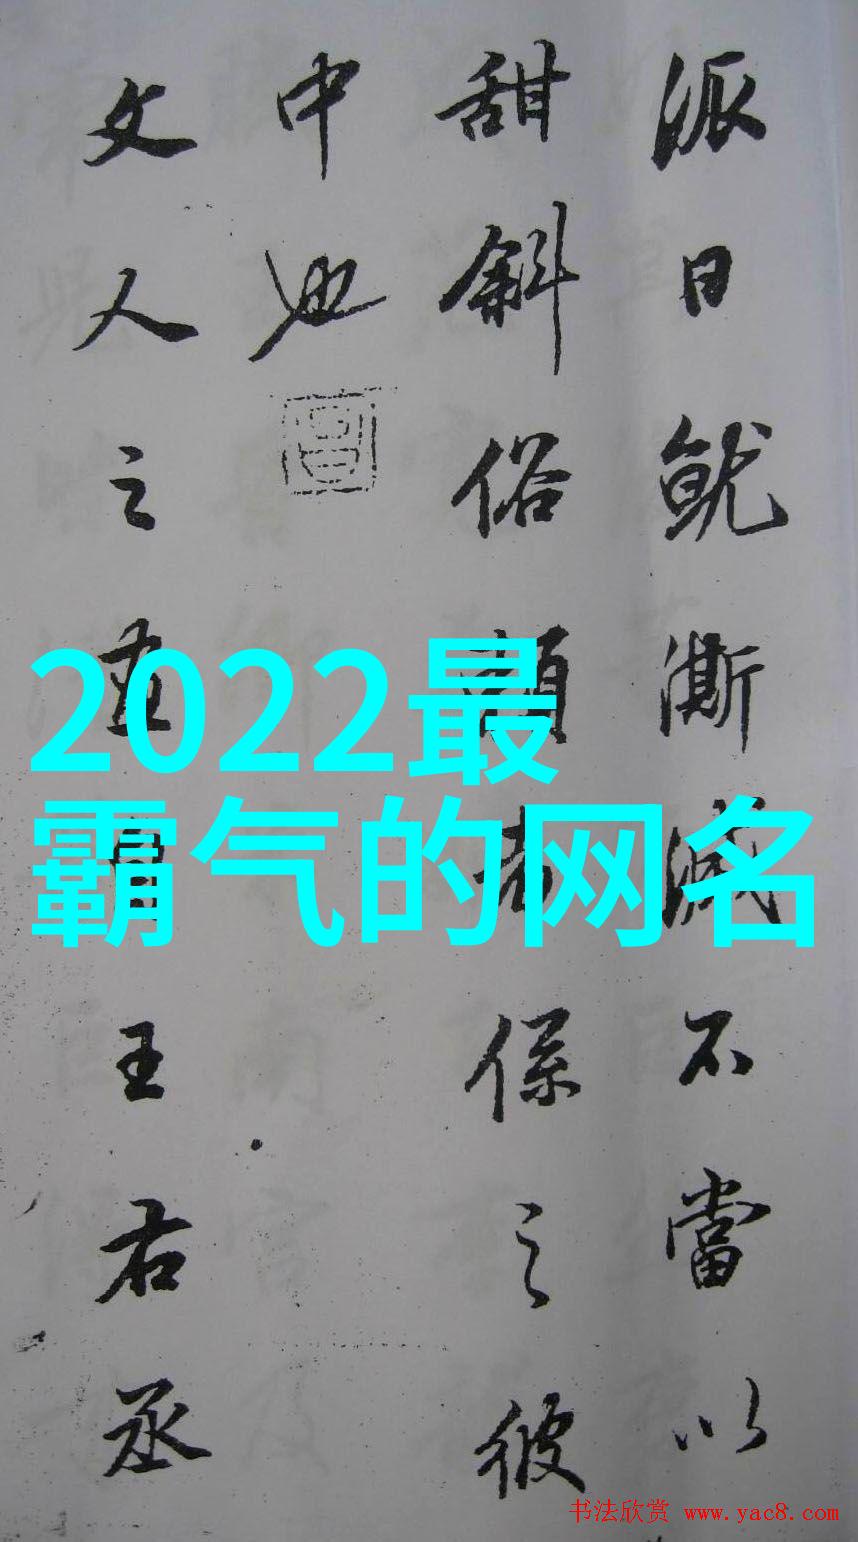 派日就澌滅不當以
甜斜俗賴者係之彼
中也
文人之畫自王右丞
2022最
霸气的网名
书法欣赏 www.yac8.com